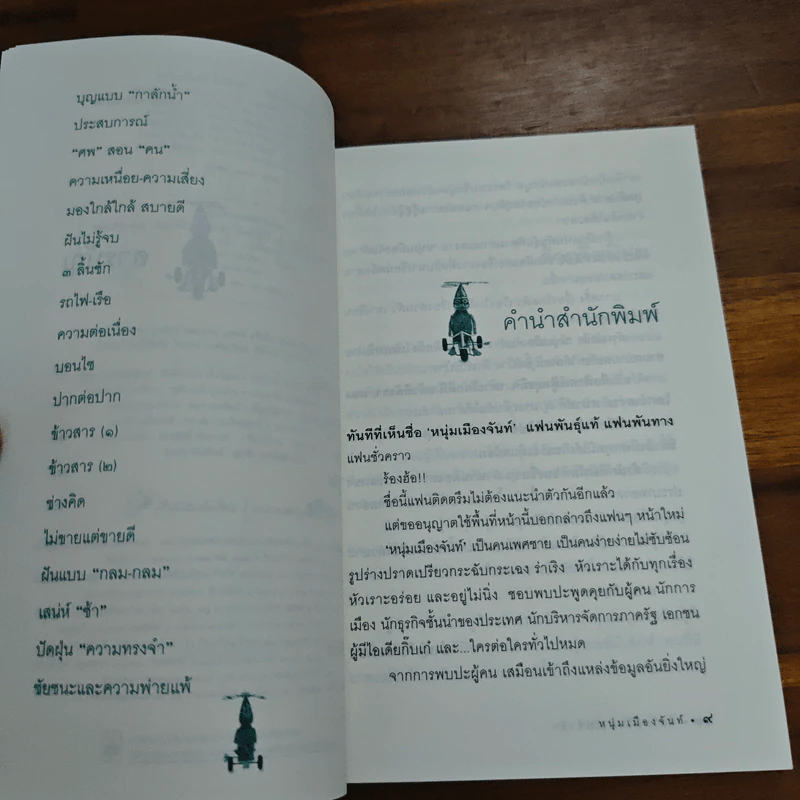 บุญแบบ "กาลักน้ำ"
ประสบการณ์
"ศพ" สอน "คน"
ความเหนื่อย-ความเสี่ยง
มองใกล้ใกล้ สบายดี
ฝันไม่รู้จบ
๓ ลิ้นชัก
รถไฟ-เรือ
ความต่อเนื่อง
บอนไซ
ปากต่อปาก
ข้าวสาร (๑)
ข้าวสาร (๒)
ช่างคิด
ไม่ขายแต่ขายดี
ฝันแบบ "กลม-กลม"
เสน่ห์ "ช้า"
ปัดฝุ่น "ความทรงจำ"
ชัยชนะและความพ่ายแพ้
คำนำสำนักพิมพ์
ทันทีที่เห็นชื่อ 'หนุ่มเมืองจันท์' แฟนพันธุ์แท้ แฟนพันทาง
แฟนชั่วคราว
ร้องฮ้อ!!
ชื่อนี้แฟนติดตรึมไม่ต้องแนะนำตัวกันอีกแล้ว
แต่ขออนุญาตใช้พื้นที่หน้านี้บอกกล่าวถึงแฟนๆ หน้าใหม่
'หนุ่มเมืองจันท์' เป็นคนเพศชาย เป็นคนง่ายง่ายไม่ซับซ้อน
รูปร่างปราดเปรียวกระฉับกระเฉง ร่าเริง หัวเราะได้กับทุกเรื่อง
หัวเราะอร่อย และอยู่ไม่นิ่ง ชอบพบปะพูดคุยกับผู้คน นักการ
เมือง นักธุรกิจชั้นนำของประเทศ นักบริหารจัดการภาครัฐ เอกชน
ผู้มีไอเดียกิ๊บเก๋ และ...ใครต่อใครทั่วไปหมด
จากการพบปะผู้คน เสมือนเข้าถึงแหล่งข้อมูลอันยิ่งใหญ่
หนุ่มเมืองจันท์ • ๙